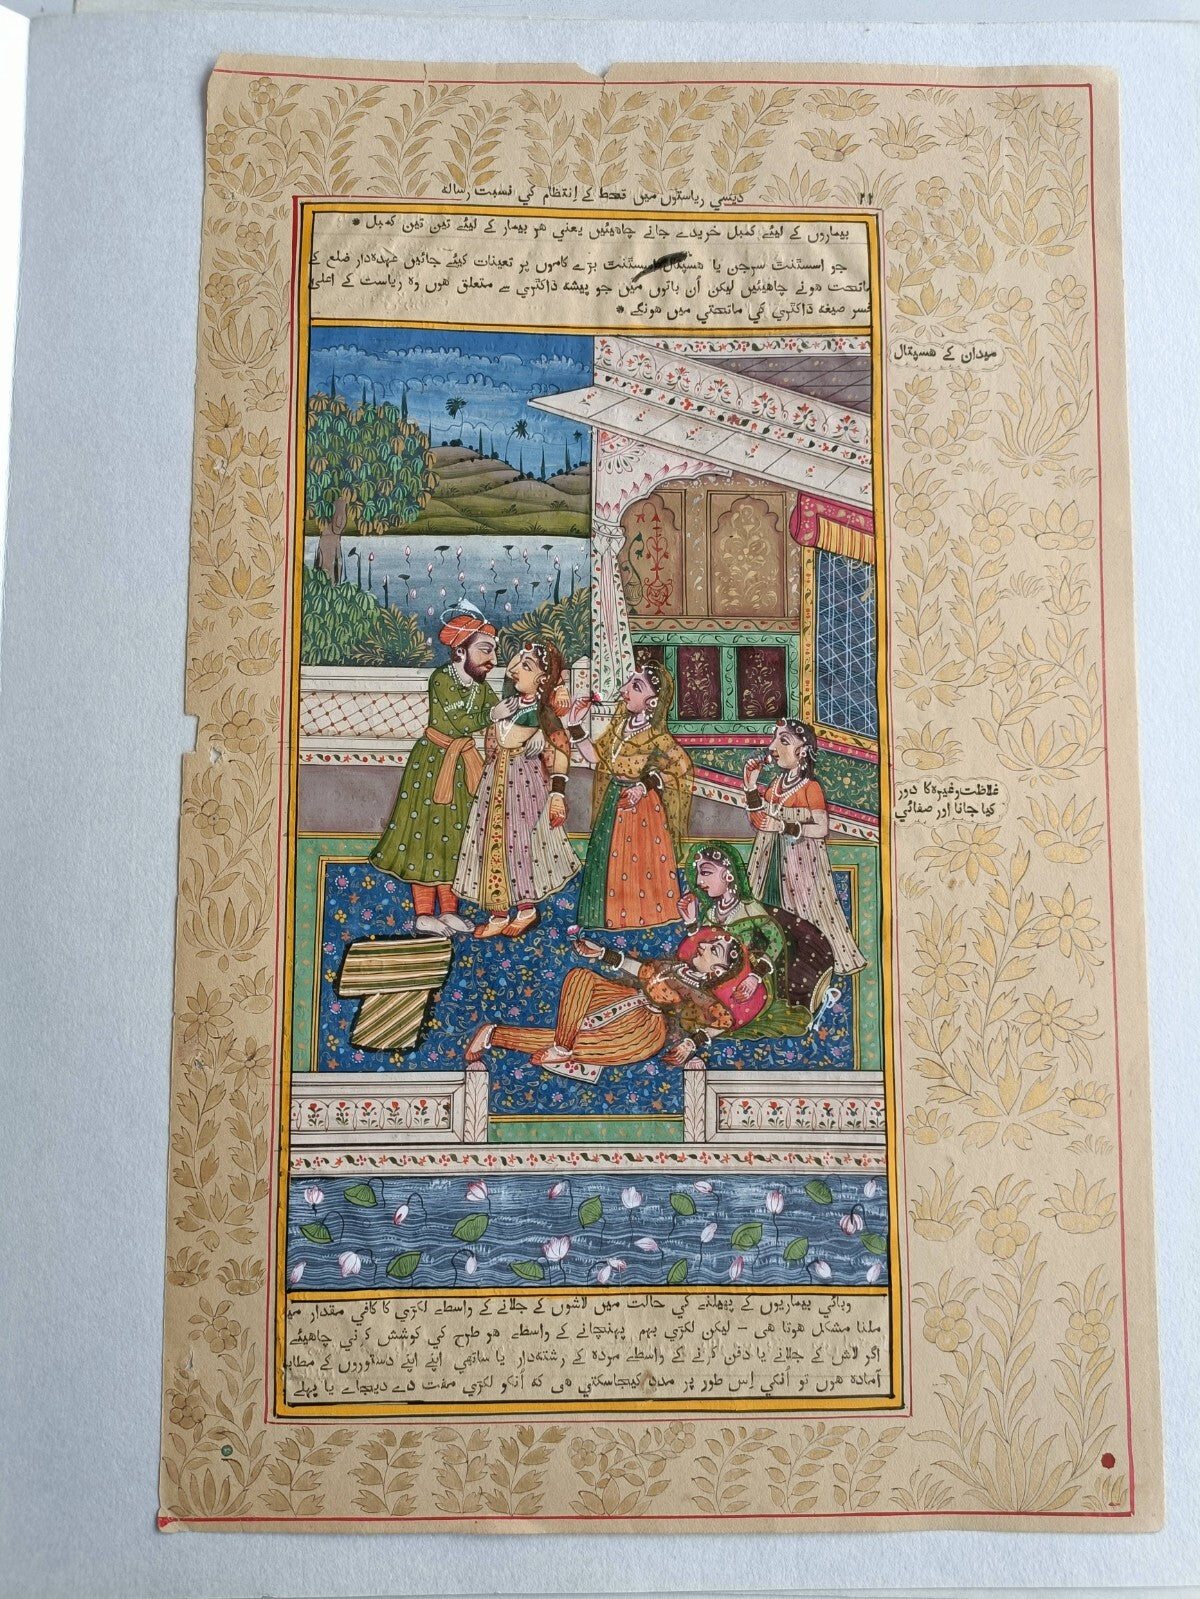 ۲۲
ديسي رياستوں ميں قحط کے اِنتظام کي نسبت رساله
بيماروں کے ليئے کمبل خريدے جانے چاهيئيں يعني هر بيمار کے ليئے تين تين کمبل *
جو اسسٹنٹ سرجن يا هسپتال اسسٹنٹ بڑے کاموں پر تعينات کيئے جائيں عهده‌دار ضلع کے
ماتحت هونے چاهيئيں ليکن اُن باتوں ميں جو پيشه ڈاکٹري سے متعلق هوں وه رياست کے اعلیٰ
فسر صيغه ڈاکٹري کي ماتحتي ميں هونگے *
ميدان کے هسپتال
غلاظت وغيره کا دور
کيا جانا اور صفائي
وبائي بيماريوں کے پهيلنے کي حالت ميں لاشوں کے جلانے کے واسطے لکڑي کا کافي مقدار ميں
ملنا مشکل هوتا هی – ليکن لکڑي بهم پهنچانے کے واسطے هر طرح کي کوشش کرني چاهيئے
اگر لاش کے جلانے يا دفن کرنے کے واسطے مرده کے رشته‌دار يا ساتهي اپنے اپنے دستوروں کے مطابق
آماده هوں تو اُنکي اِس طور پر مدد کيجاسکتي هی که اُنکو لکڑي مفت دے ديجاے يا پہلے